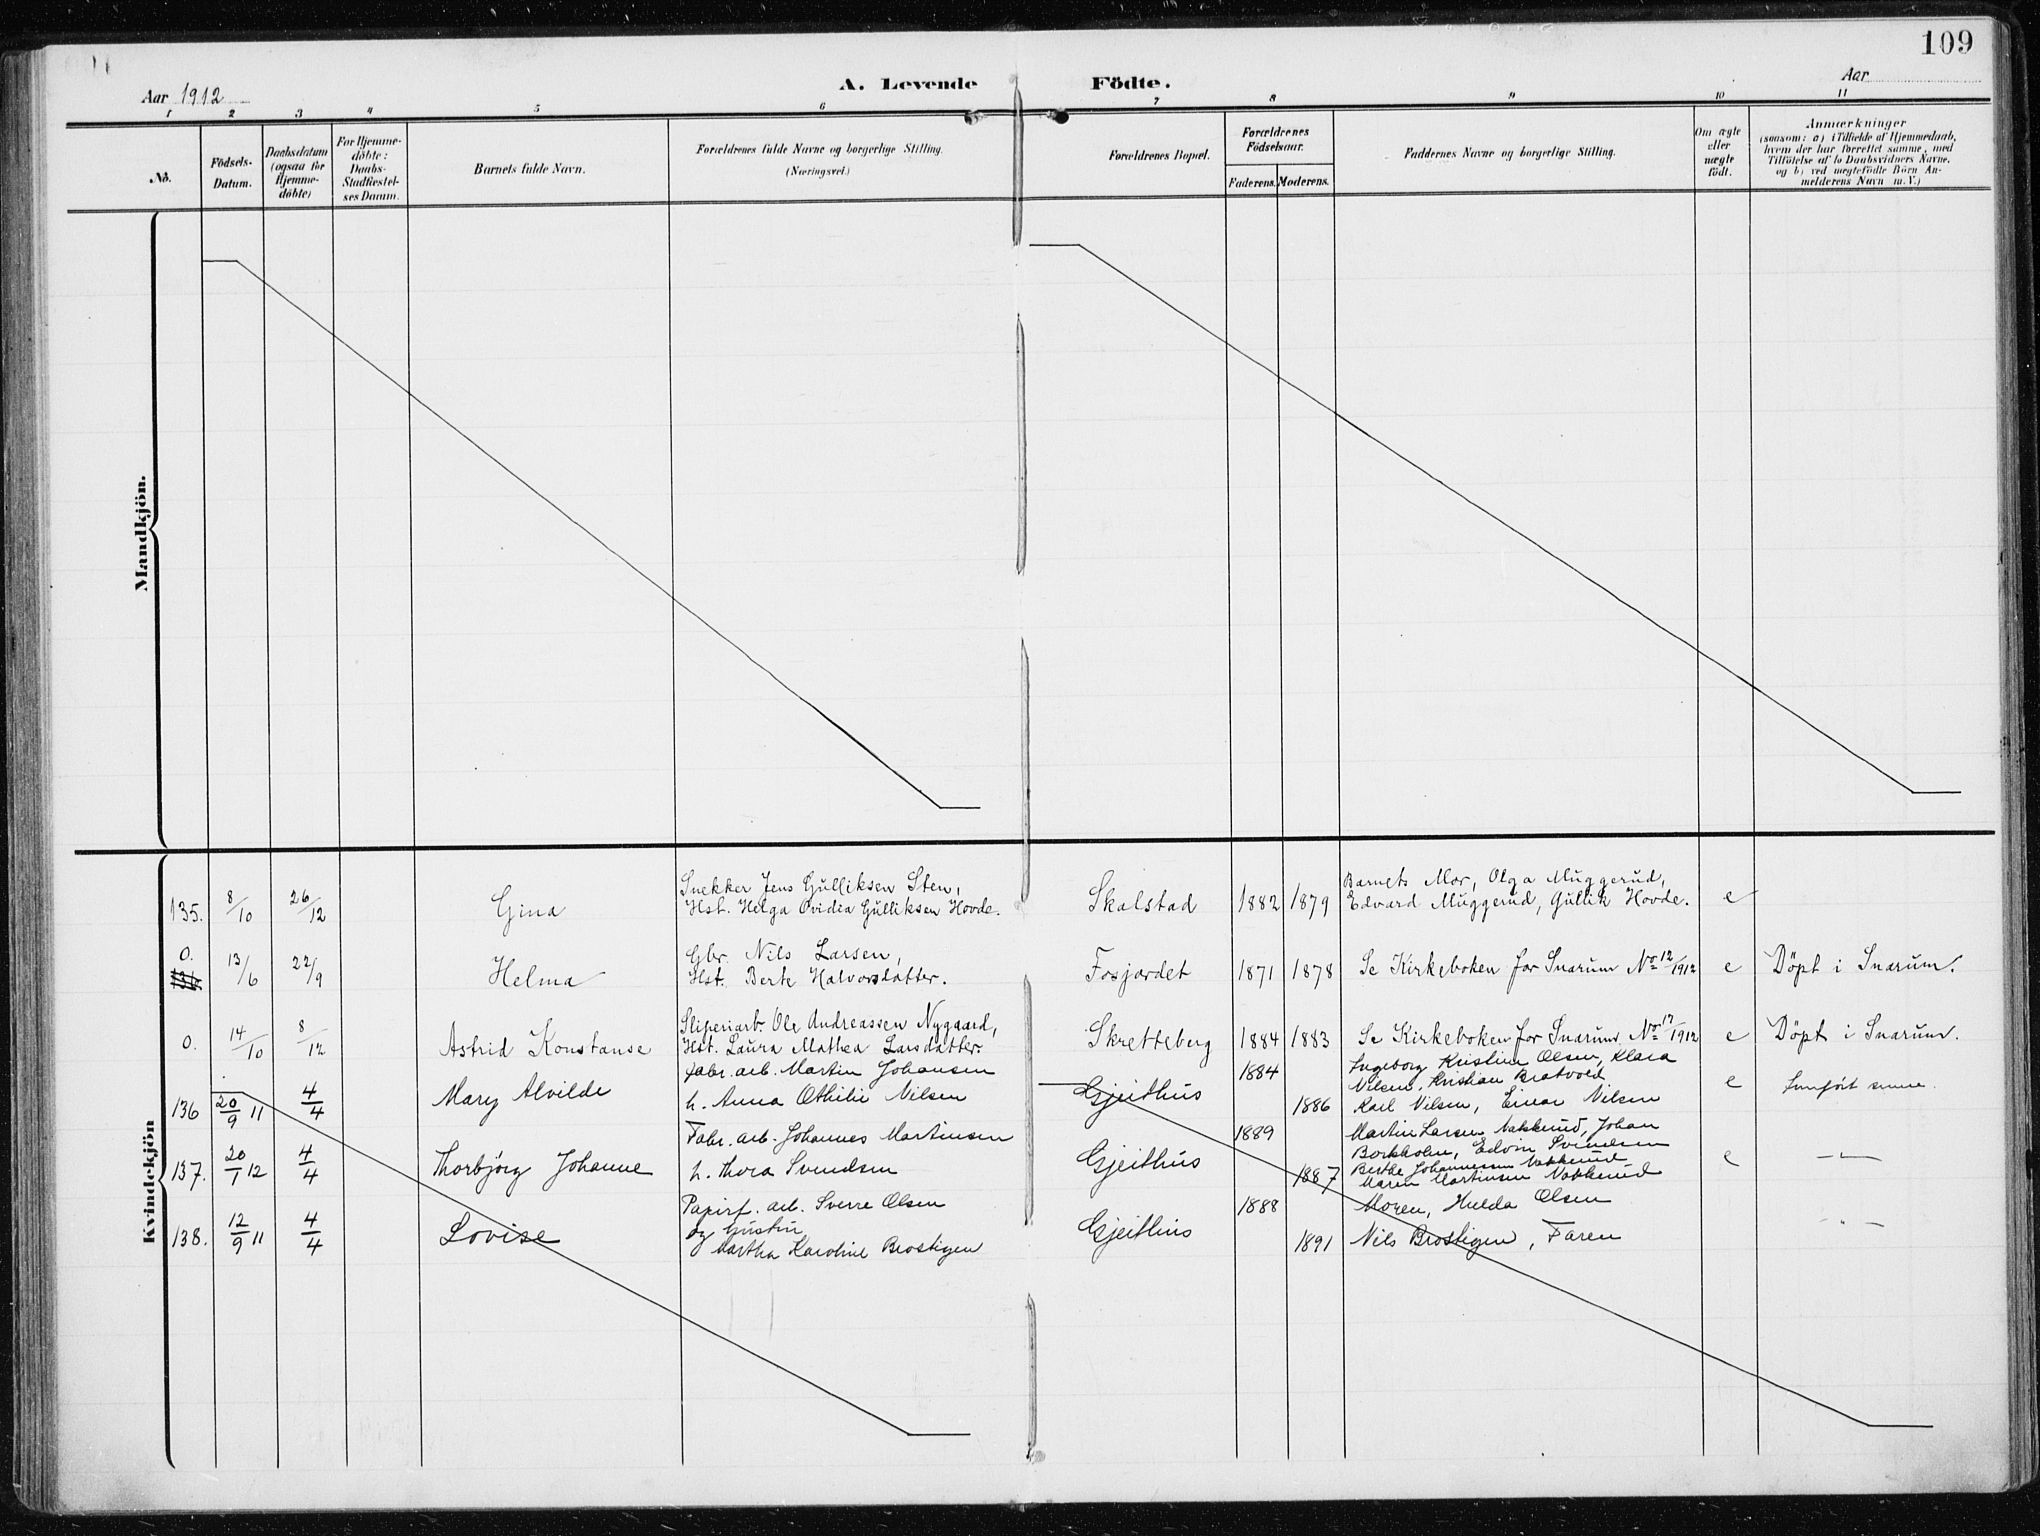 109
Aar 1912
A. Levende Födte.
Aar
1 2 3 4 5 6 7 8 9 10 11
No.
Födsels-Datum.
Daabsdatum (ogsaa för Hjemmedöbte)
For Hjemmedöbte: Daabs-Stadfæstelses Datum.
Barnets fulde Navn.
Forældrenes fulde Navne og borgerlige Stilling.
(Næringsvei.)
Forældrenes Bopæl.
Forældrenes Födselsaar.
Faderens. Moderens.
Faddernes Navne og borgerlige Stilling.
Om ægte eller uægte födt.
Anmærkninger
(saasom: a) i Tilfælde af Hjemmedaab, hvem der har forrettet samme, med Tilföielse af to Daabsvidners Navne, og b) ved uægtefödte Börn Anmelderens Navn m. V.)
Mandkjön.
Kvindekjön
135. 8/10 26/12 Gina
Snekker Jens Gulliksen Sten,
Hst. Helga Ovidia Gulliksen Hovde.
Skalstad 1882 1879
Barnets Mor, Olga Muggerud,
Edvard Muggerud, Gullik Hovde. e
0.
136. 13/6 22/9 Helma
Gbr. Nils Larsen,
Hst. Berte Halvorsdatter.
Fosjordet 1871 1878 Se Kirkeboken for Snarum No 12/1912 e Döpt i Snarum.
0. 14/10 8/12 Astrid Konstanse
Sliperiarb. Ole Andreassen Nygaard,
Hst. Laura Mathea Larsdatter.
Skretteberg 1884 1883 Se Kirkeboken for Snarum No 17/1912 e Döpt i Snarum.
136 20/9 11 4/4 Mary Alvilde
Fabr. arb. Martin Johansen
h. Anna Othilie Nilsen
Gjeithus 1884 1886
Ingeborg Kristine Olsen, Klara
Nilsen, Kristian Bratvold
Karl Nilsen, Einar Nilsen
e
137. 20/1 12 4/4 Thorbjörg Johanne
Fabr. arb. Johannes Martinsen
h. Thora Svendsen
Gjeithus 1889 1887
Martin Larsen Nakkerud, Johan
Borkholm, Edvin Svendsen
Berthe Johannessen Nakkerud
Maren Martinsen Nakkerud
e — " —
138. 12/9 11 4/4 Lovise
Papirf. arb. Sverre Olsen
og hustru
Martha Karoline Brostigen
Gjeithus 1888 1891
Moren, Hulda Olsen
Nils Brostigen, Faren
— " —